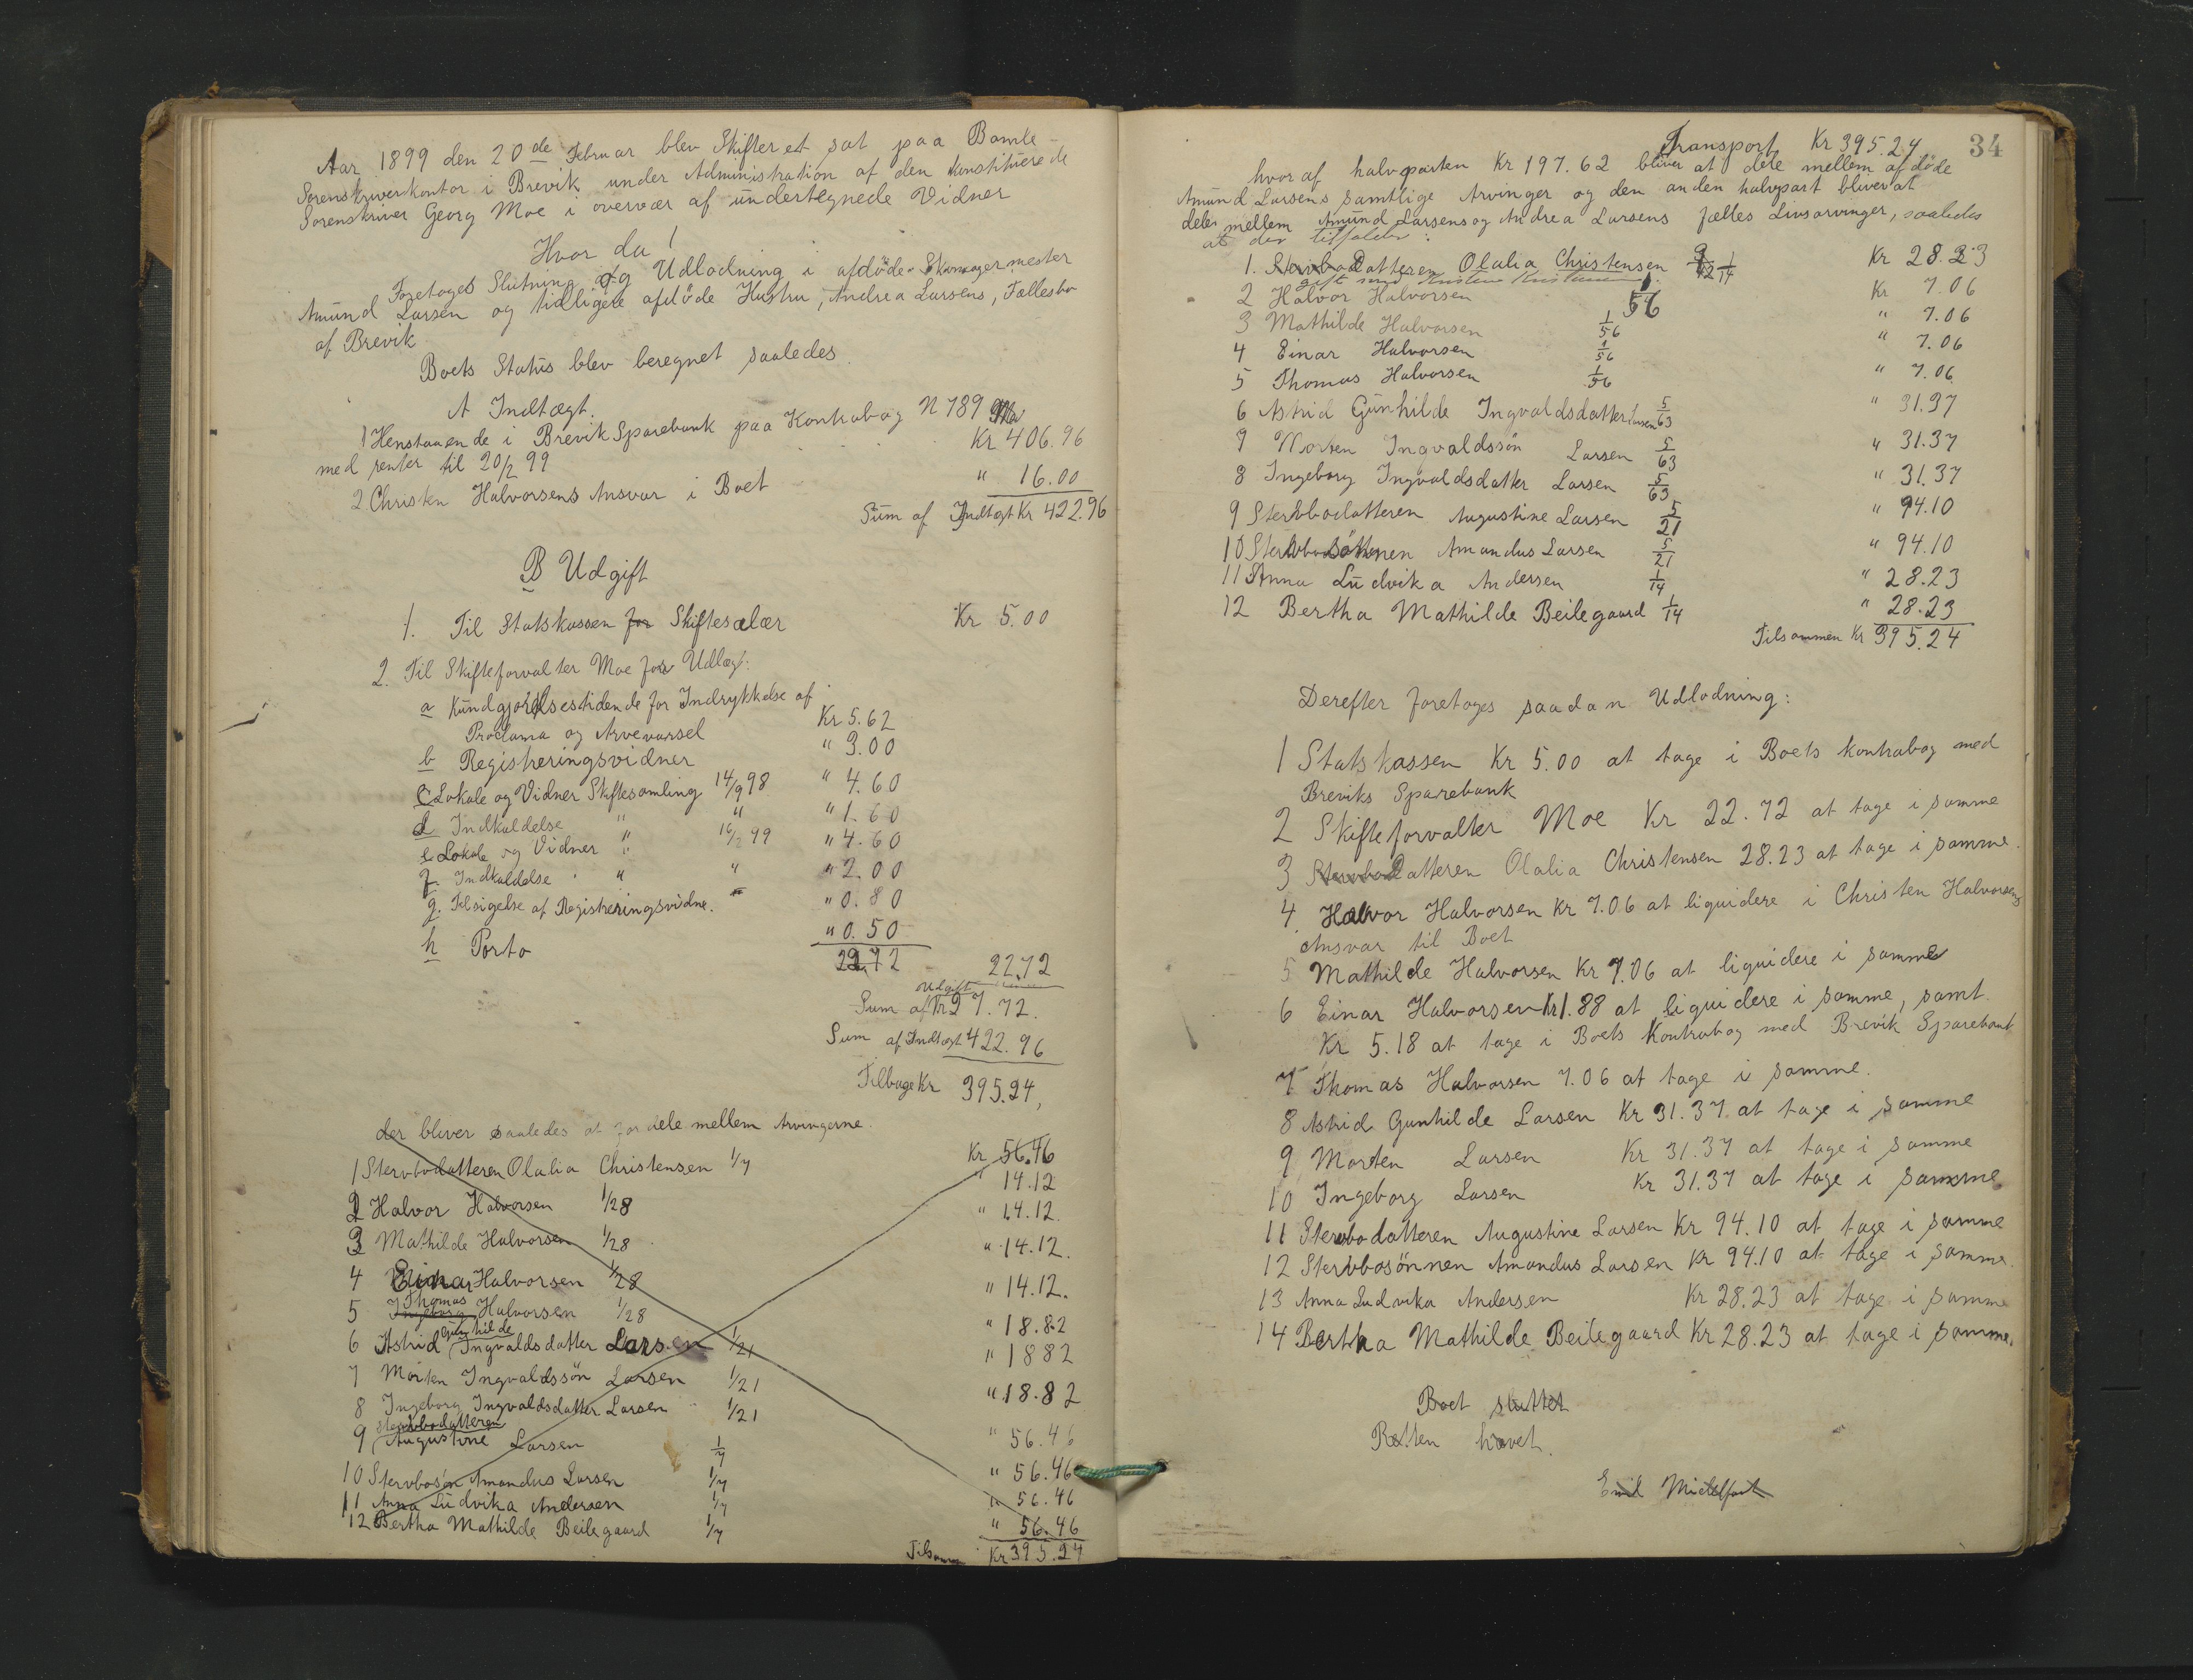 Aar 1899 den 20de Februar blev Skifteret sat paa Bamle
Sorenskriverkontor i Brevik under Administration af den konstituerede
Sorenskriver Georg Moe i overvær af undertegnede Vidner
Hvor da!
Foretoges Slutning og Udlodning i afdöde Skomagermester
Amund Larsen og tidligere afdöde Hustru, Andrea Larsens, Fællesbo
af Brevik.
Boets Status blev beregnet saaledes.
A Indtægt.
1 Henstaaende i Brevik Sparebank paa Kontrabog N 789
med renter til 20/2 99 Kr 406.96
2 Christen Halvorsens Ansvar i Boet " 16.00
Sum af Indtægt Kr 422.96
B Udgift
1. Til Statskassen for Skiftesalær Kr 5.00
2. Til Skifteforvalter Moe for Udlæg:
a Kundgjörelsestidende for Indrykkelse af
Proclama og Arvevarsel Kr 5.62
b Registreringsvidner " 3.00
c Lokale og Vidner Skiftesamling 14/9 98 " 4.60
d Indkaldelse " " " 1.60
e Lokale og Vidner " 16/2 99 " 4.60
f. Indkaldelse " " " 2.00
g. Tilsigelse af Registreringsvidne. " " 0.80
h Porto " 0.50
22.72 22.72
Sum af Udgift Kr 27.72.
Sum af Indtægt 422.96
Tilbage Kr 395.24,
der bliver saaledes at fordele mellem Arvingerne.
1 Stervbodatteren Olalia Christensen 1/7 Kr 56.46
2 Halvor Halvorsen 1/28 " 14.12
3 Mathilde Halvorsen 1/28 " 14.12.
4 Einar Halvorsen 1/28 " 14.12.
5 Thomas Halvorsen 1/28 " 14.12.
6 Astrid Gunhilde Ingvaldsdatter Larsen 1/21 " 18.82
7 Morten Ingvaldssön Larsen 1/21 " 18 82
8 Ingeborg Ingvaldsdatter Larsen 1/21 " 18.82
9 Stervbodatteren Augustine Larsen 1/7 " 56.46
10 Stervbosön Amandus Larsen 1/7 " 56.46
11 Anna Ludvika Andersen 1/7 " 56.46
12 Bertha Mathilde Beilegaard 1/7 " 56.46
Tilsammen Kr 395.24
34
Transport Kr 395.24
hvoraf halvparten Kr 197.62 bliver at dele mellem afdöde
Amund Larsens samtlige Arvinger og den anden halvpart bliver at
dele mellem Amund Larsens og Andrea Larsens fælles Livsarvinger, saaledes
at der tilfalder:
1. Datteren Olalia Christensen 1/14 Kr 28.23
gift med Kristen Kristensen
2 Halvor Halvorsen 1/56 Kr 7.06
3 Mathilde Halvorsen 1/56 " 7.06
4 Einar Halvorsen 1/56 " 7.06
5 Thomas Halvorsen 1/56 " 7.06
6 Astrid Gunhilde Ingvaldsdatter Larsen 5/63 " 31.37
7 Morten Ingvaldssön Larsen 5/63 " 31.37
8 Ingeborg Ingvaldsdatter Larsen 5/63 " 31.37
9 Stervbodatteren Augustine Larsen 5/21 " 94.10
10 Stervbosönnen Amandus Larsen 5/21 " 94.10
11 Anna Ludvika Andersen 1/14 " 28.23
12 Bertha Mathilde Beilegaard 1/14 " 28.23
Tilsammen Kr 395.24
Derefter foretoges saadan Udlodning:
1 Statskassen Kr 5.00 at tage i Boets kontrabog med
Breviks Sparebank
2 Skifteforvalter Moe Kr 22.72 at tage i samme
3 Datteren Olalia Christensen 28.23 at tage i samme.
4 Halvor Halvorsen Kr 7.06 at liquidere i Christen Halvorsens
Ansvar til Boet
5 Mathilde Halvorsen Kr 7.06 at liquidere i samme
6 Einar Halvorsen Kr 1.88 at liquidere i samme, samt
Kr 5.18 at tage i Boets Kontrabog med Brevik Sparebank
7 Thomas Halvorsen 7.06 at tage i samme.
8 Astrid Gunhilde Larsen Kr 31.37 at tage i samme
9 Morten Larsen Kr 31.37 at tage i samme
10 Ingeborg Larsen Kr 31.37 at tage i samme
11 Stervbodatteren Augustine Larsen Kr 94.10 at tage i samme
12 Stervbosönnen Amandus Larsen Kr 94.10 at tage i samme.
13 Anna Ludvika Andersen Kr 28.23 at tage i samme
14 Bertha Mathilde Beilegaard Kr 28.23 at tage i samme.
Boet sluttet
Retten hævet.
Emil Middelfart